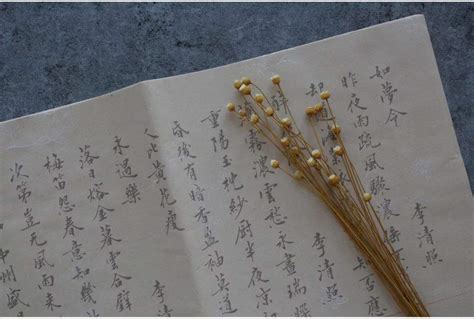 如夢令 李清照
昨夜雨疏風驟濃
知 否應
醉 李清照
霧濃雲愁永晝瑞
重陽玉枕紗厨半夜涼初
昏後有暗香盈袖莫道
人比黃花瘦
永遇樂 李清照
落日熔金暮雲合璧
梅笛怨春意知幾
次第豈无風雨來
中州盛